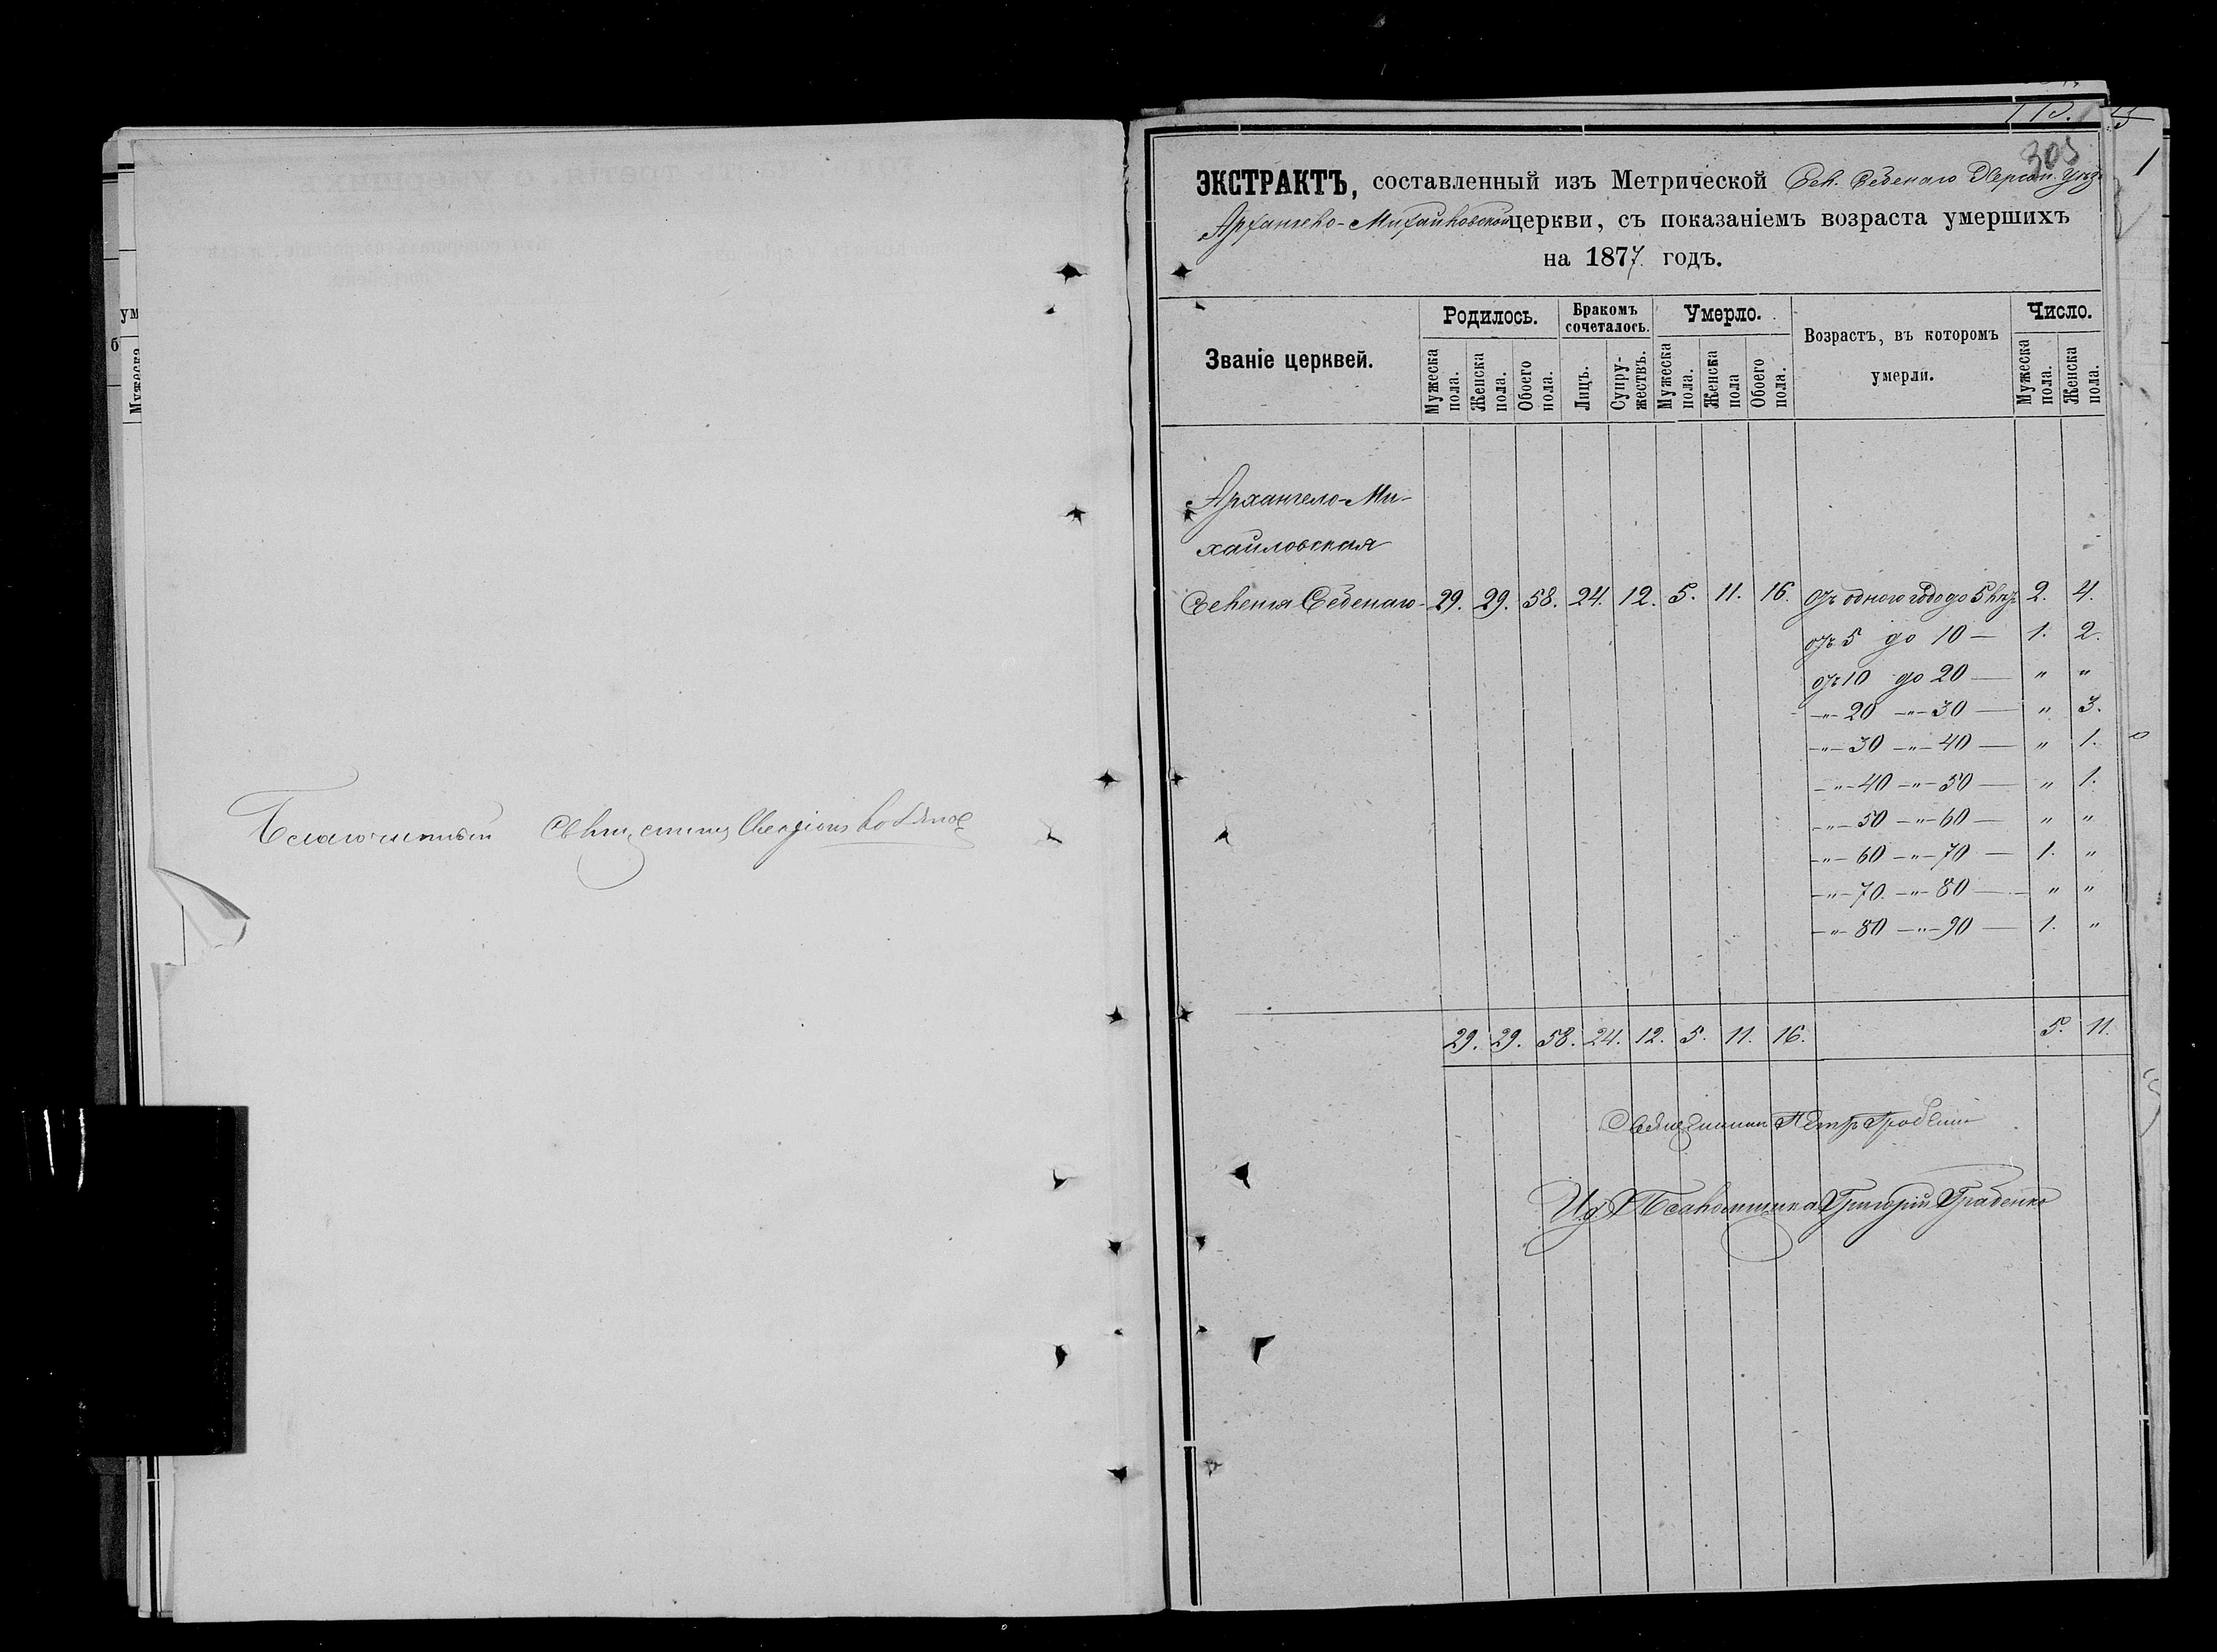 Благочинный Священникъ
305
ЭКСТРАКТЪ, составленный изъ Метрической Сел. Себенаго Херсон. Уѣзд.
Архангело-Михайловской церкви, съ показаніемъ возраста умершихъ
на 1877 годъ.
Званіе церквей.
Родилось.
Мужеска пола.
Женска пола.
Обоего пола.
Бракомъ сочеталось.
Лицъ.
Супружествъ.
Умерло.
Мужеска пола.
Женска пола
Обоего пола.
Возрастъ, въ которомъ
умерли.
Число.
Мужеска пола.
Женска пола.
Архангело-Ми-
хайловская
Селенія Себенаго 29. 29. 58. 24. 12. 5. 11. 16. Отъ одного года до 5 лѣтъ 2. 4.
отъ 5 до 10 — 1. 2.
отъ 10 до 20 — " "
—"— 20 —"— 30 — " 3.
—"— 30 —"— 40 — " 1.
—"— 40 —"— 50 — " 1.
—"— 50 —"— 60 — " "
—"— 60 —"— 70 — 1. "
—"— 70. —"— 80 — " "
—"— 80 —"— 90 — 1. "
29. 29. 58. 24. 12. 5. 11. 16. 5. 11.
Священникъ Петръ
И. д. Псаломщика Григорій Грабенко
ум
б
Мужеска